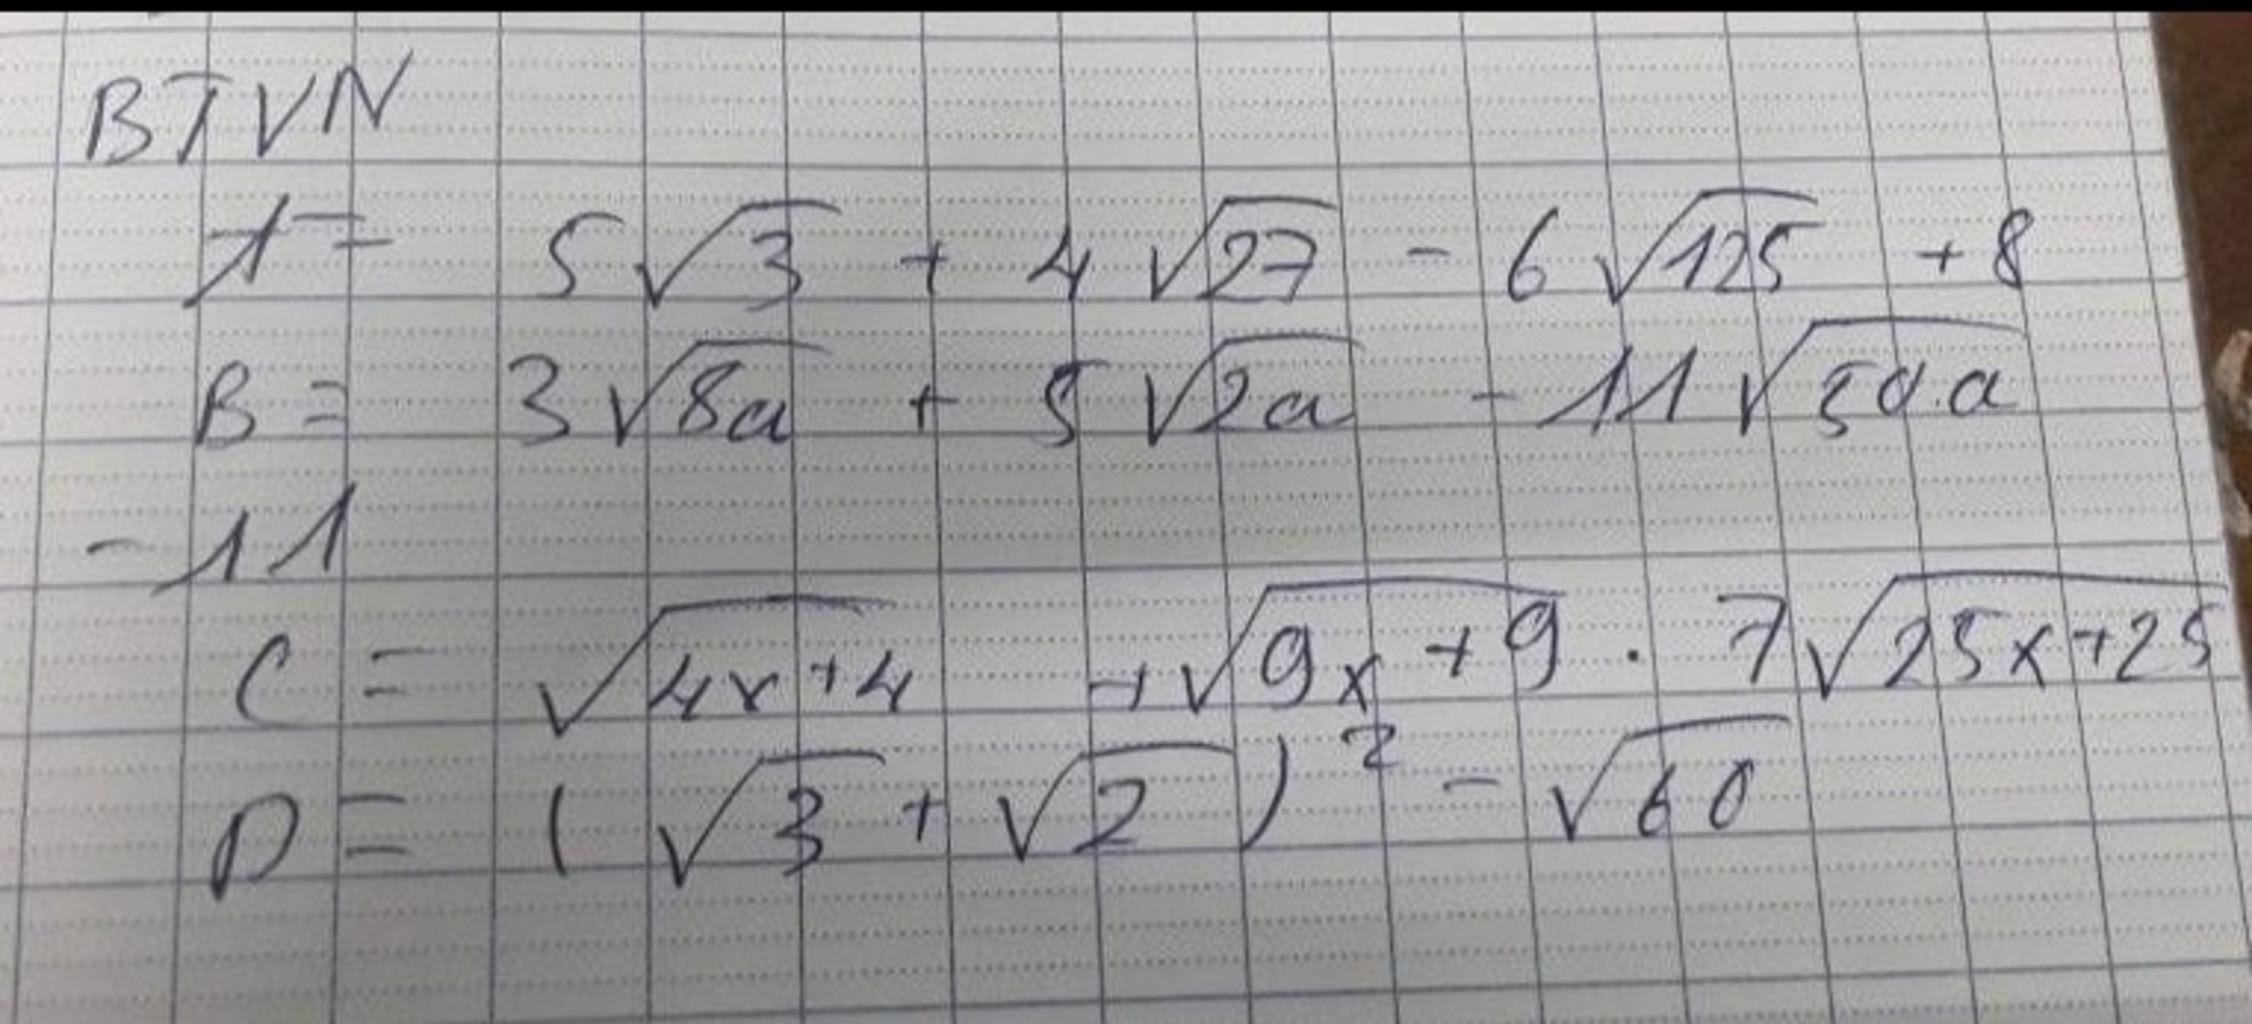 BTVN
A = 5√3 + 4√27 - 6√125 + 8
B = 3√8a + 5√2a - 11√50.a
- 11
C = √4x+4 + √9x+9 . 7√25x+25
D = (√3 + √2)² - √60